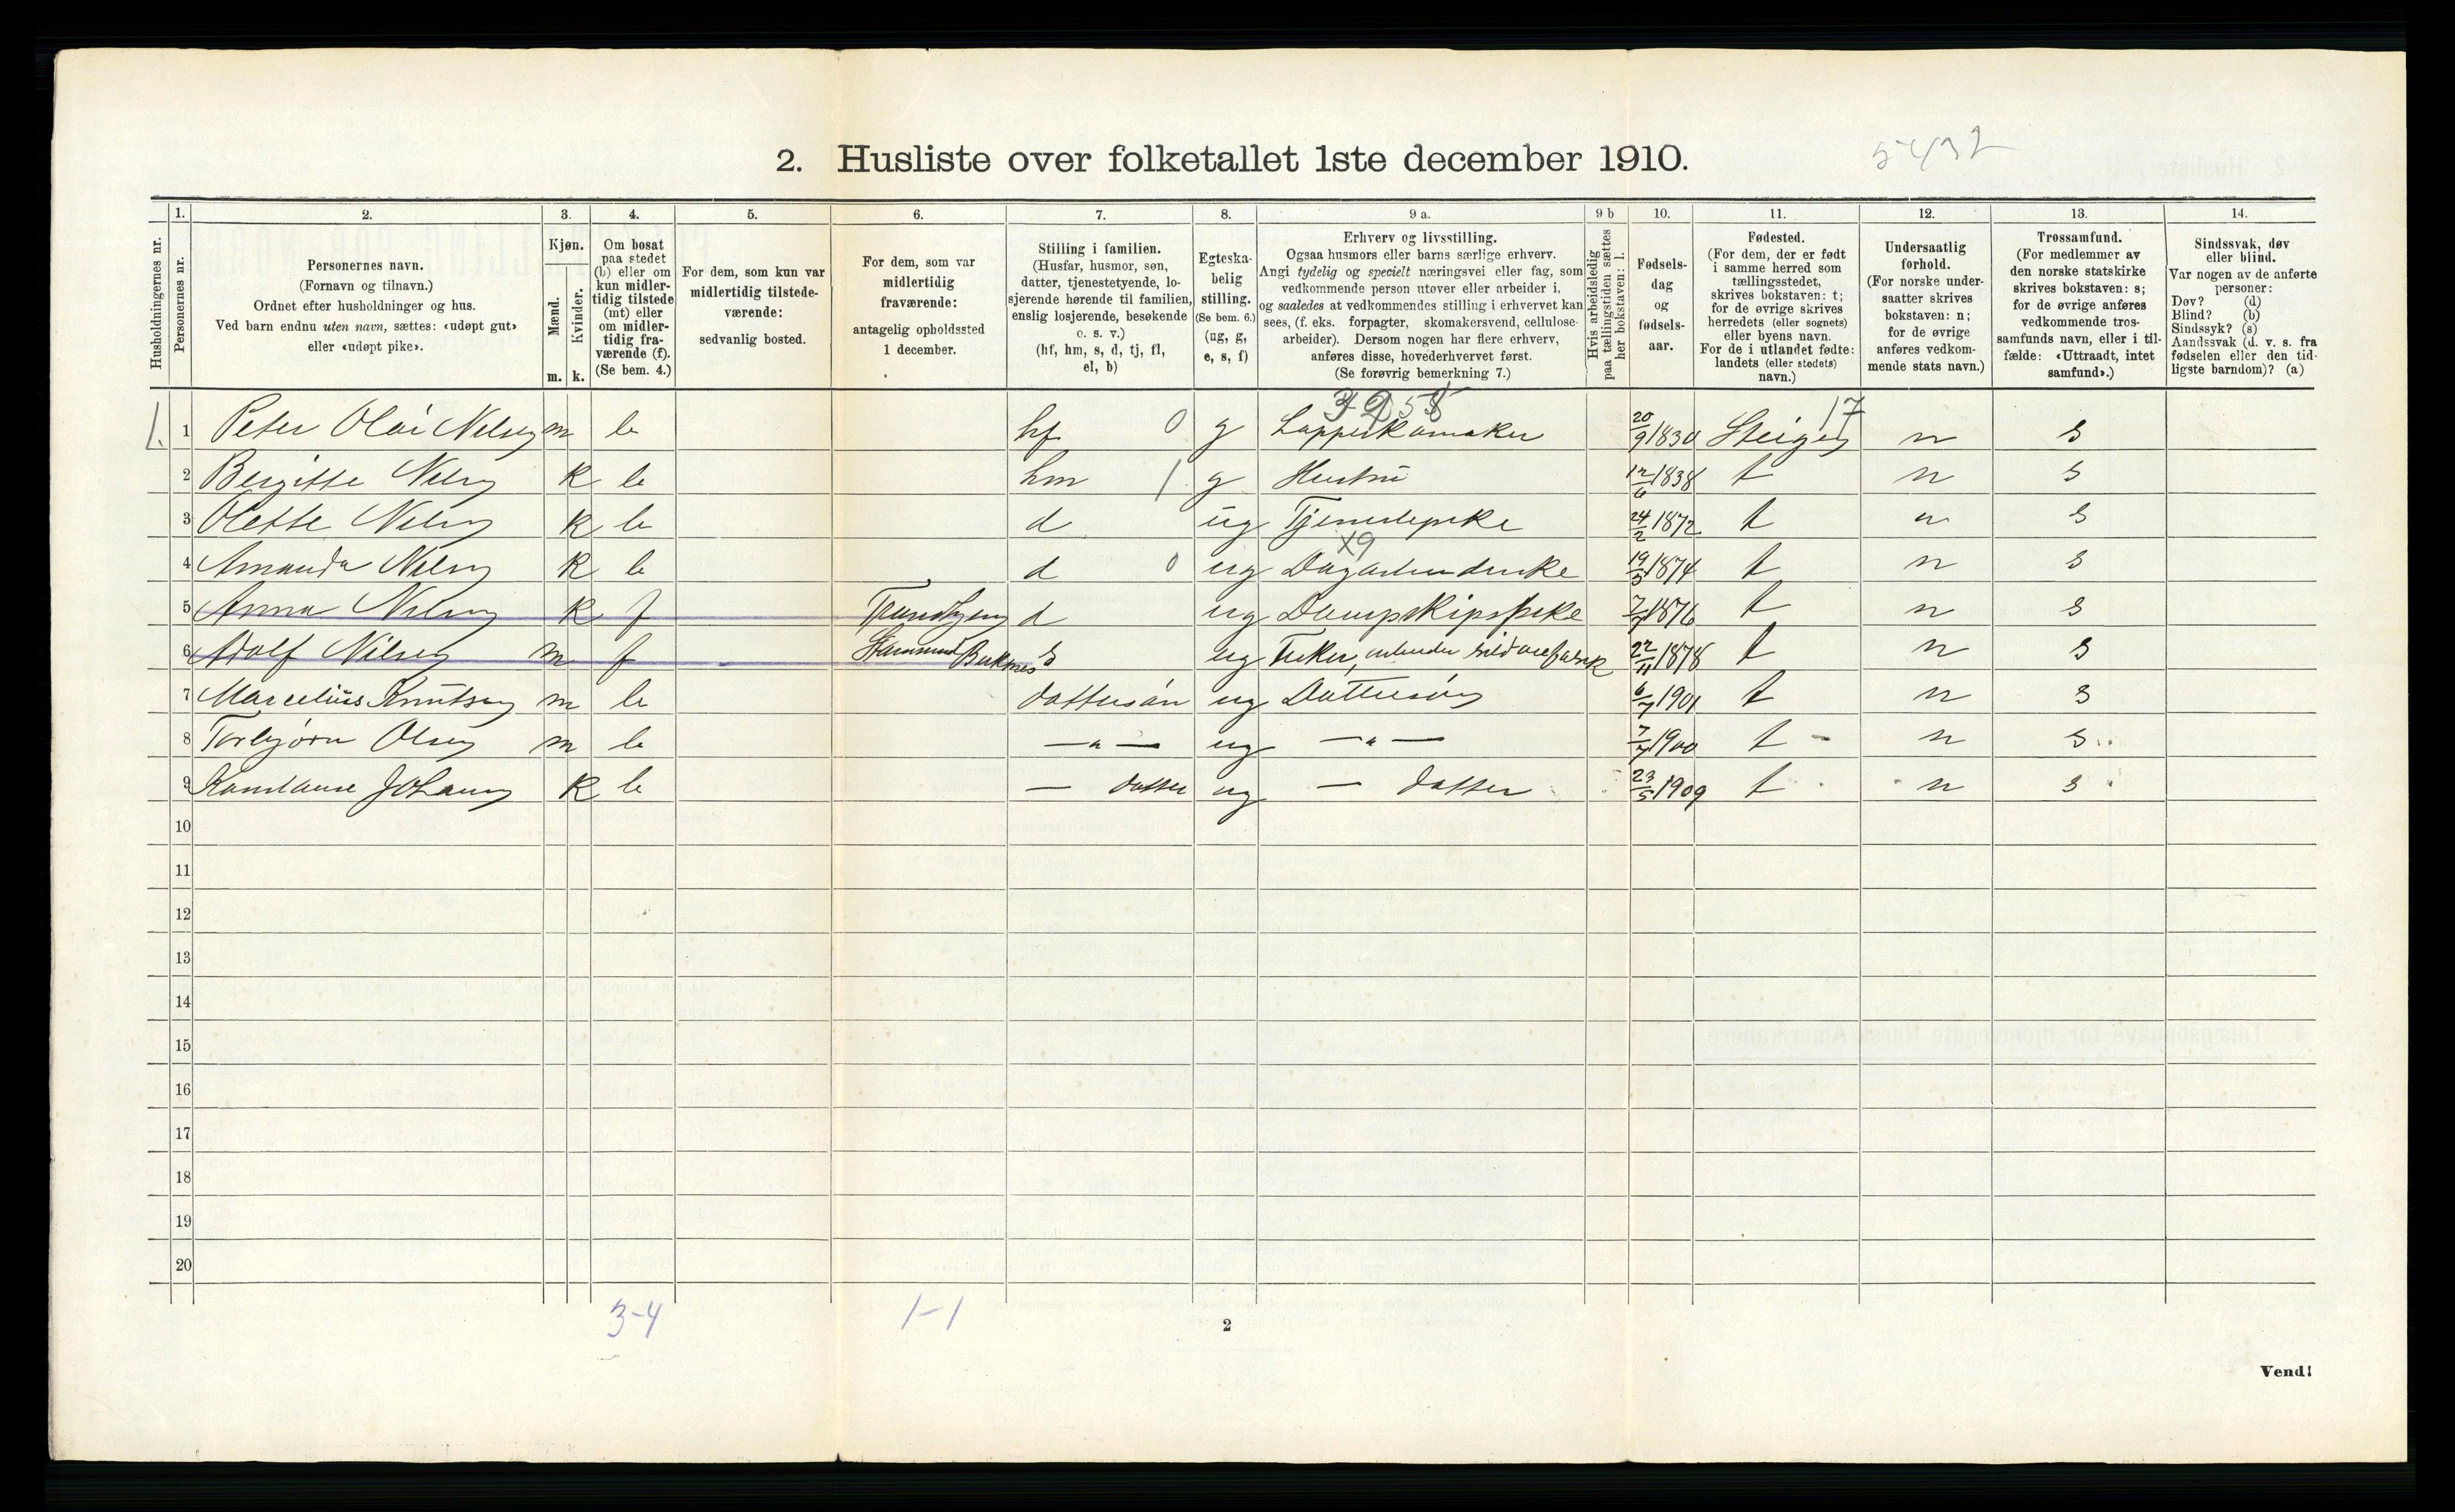 5432
2. Husliste over folketallet 1ste december 1910.
Husholdningernes nr.
1. Personernes nr.
2. Personernes navn. (Fornavn og tilnavn.) Ordnet efter husholdninger og hus. Ved barn endnu uten navn, sættes: «udøpt gut» eller «udøpt pike».
3. Kjøn. Mænd. m. Kvinder. k.
4. Om bosat paa stedet (b) eller om kun midlertidig tilstede (mt) eller om midlertidig fraværende (f). (Se bem. 4.)
5. For dem, som kun var midlertidig tilstedeværende: sedvanlig bosted.
6. For dem, som var midlertidig fraværende: antagelig opholdssted 1 december.
7. Stilling i familien. (Husfar, husmor, søn, datter, tjenestetyende, losjerende hørende til familien, enslig losjerende, besøkende o. s. v.) (hf, hm, s, d, tj, fl, el, b)
8. Egteskabelig stilling. (Se bem. 6.) (ug, g, e, s, f)
9 a. Erhverv og livsstilling. Ogsaa husmors eller barns særlige erhverv. Angi tydelig og specielt næringsvei eller fag, som vedkommende person utøver eller arbeider i, og saaledes at vedkommendes stilling i erhvervet kan sees, (f. eks. forpagter, skomakersvend, cellulosearbeider). Dersom nogen har flere erhverv, anføres disse, hovederhvervet først. (Se forøvrig bemerkning 7.)
9 b Hvis arbeidsledig paa tællingstiden sættes her bokstaven: l.
10. Fødselsdag og fødselsaar.
11. Fødested. (For dem, der er født i samme herred som tællingsstedet, skrives bokstaven: t; for de øvrige skrives herredets (eller sognets) eller byens navn. For de i utlandet fødte: landets (eller stedets) navn.)
12. Undersaatlig forhold. (For norske undersaatter skrives bokstaven: n; for de øvrige anføres vedkommende stats navn.)
13. Trossamfund. (For medlemmer av den norske statskirke skrives bokstaven: s; for de øvrige anføres vedkommende trossamfunds navn, eller i tilfælde: «Uttraadt, intet samfund».)
14. Sindssvak, døv eller blind. Var nogen av de anførte personer: Døv? (d) Blind? (b) Sindssyk? (s) Aandssvak (d. v. s. fra fødselen eller den tidligste barndom)? (a)
1. 1 Peter Olai Nilsen m b hf 0 g Lappeskomaker 20/9 1830 Steigen 17 n s
2 Bergitte Nilsen k b hm 1 g Hustru 12/6 1838 t n s
3 Olette Nilsen k b d ug Tjenestepike 24/2 1872 t n s
4 Amanda Nilsen k b d 0 ug X9 19/3 1874 t n s
5 Anna Nilsen k f d ug Dampskipspike 7/7 1876 t n s
6 Adolf Nilsen m f s ug Fisker, 22/11 1878 t n s
7 Marcelius Knutsen m b dattersøn ug Dattersøn 6/7 1901 t n s
8 Torbjørn Olsen m b —"— ug —"— 7/7 1900 t - n s
9 k b — datter ug — datter 23/5 1909 t n s
10
11
12
13
14
15
16
17
18
19
20
3-4 1-1
2
Vend!